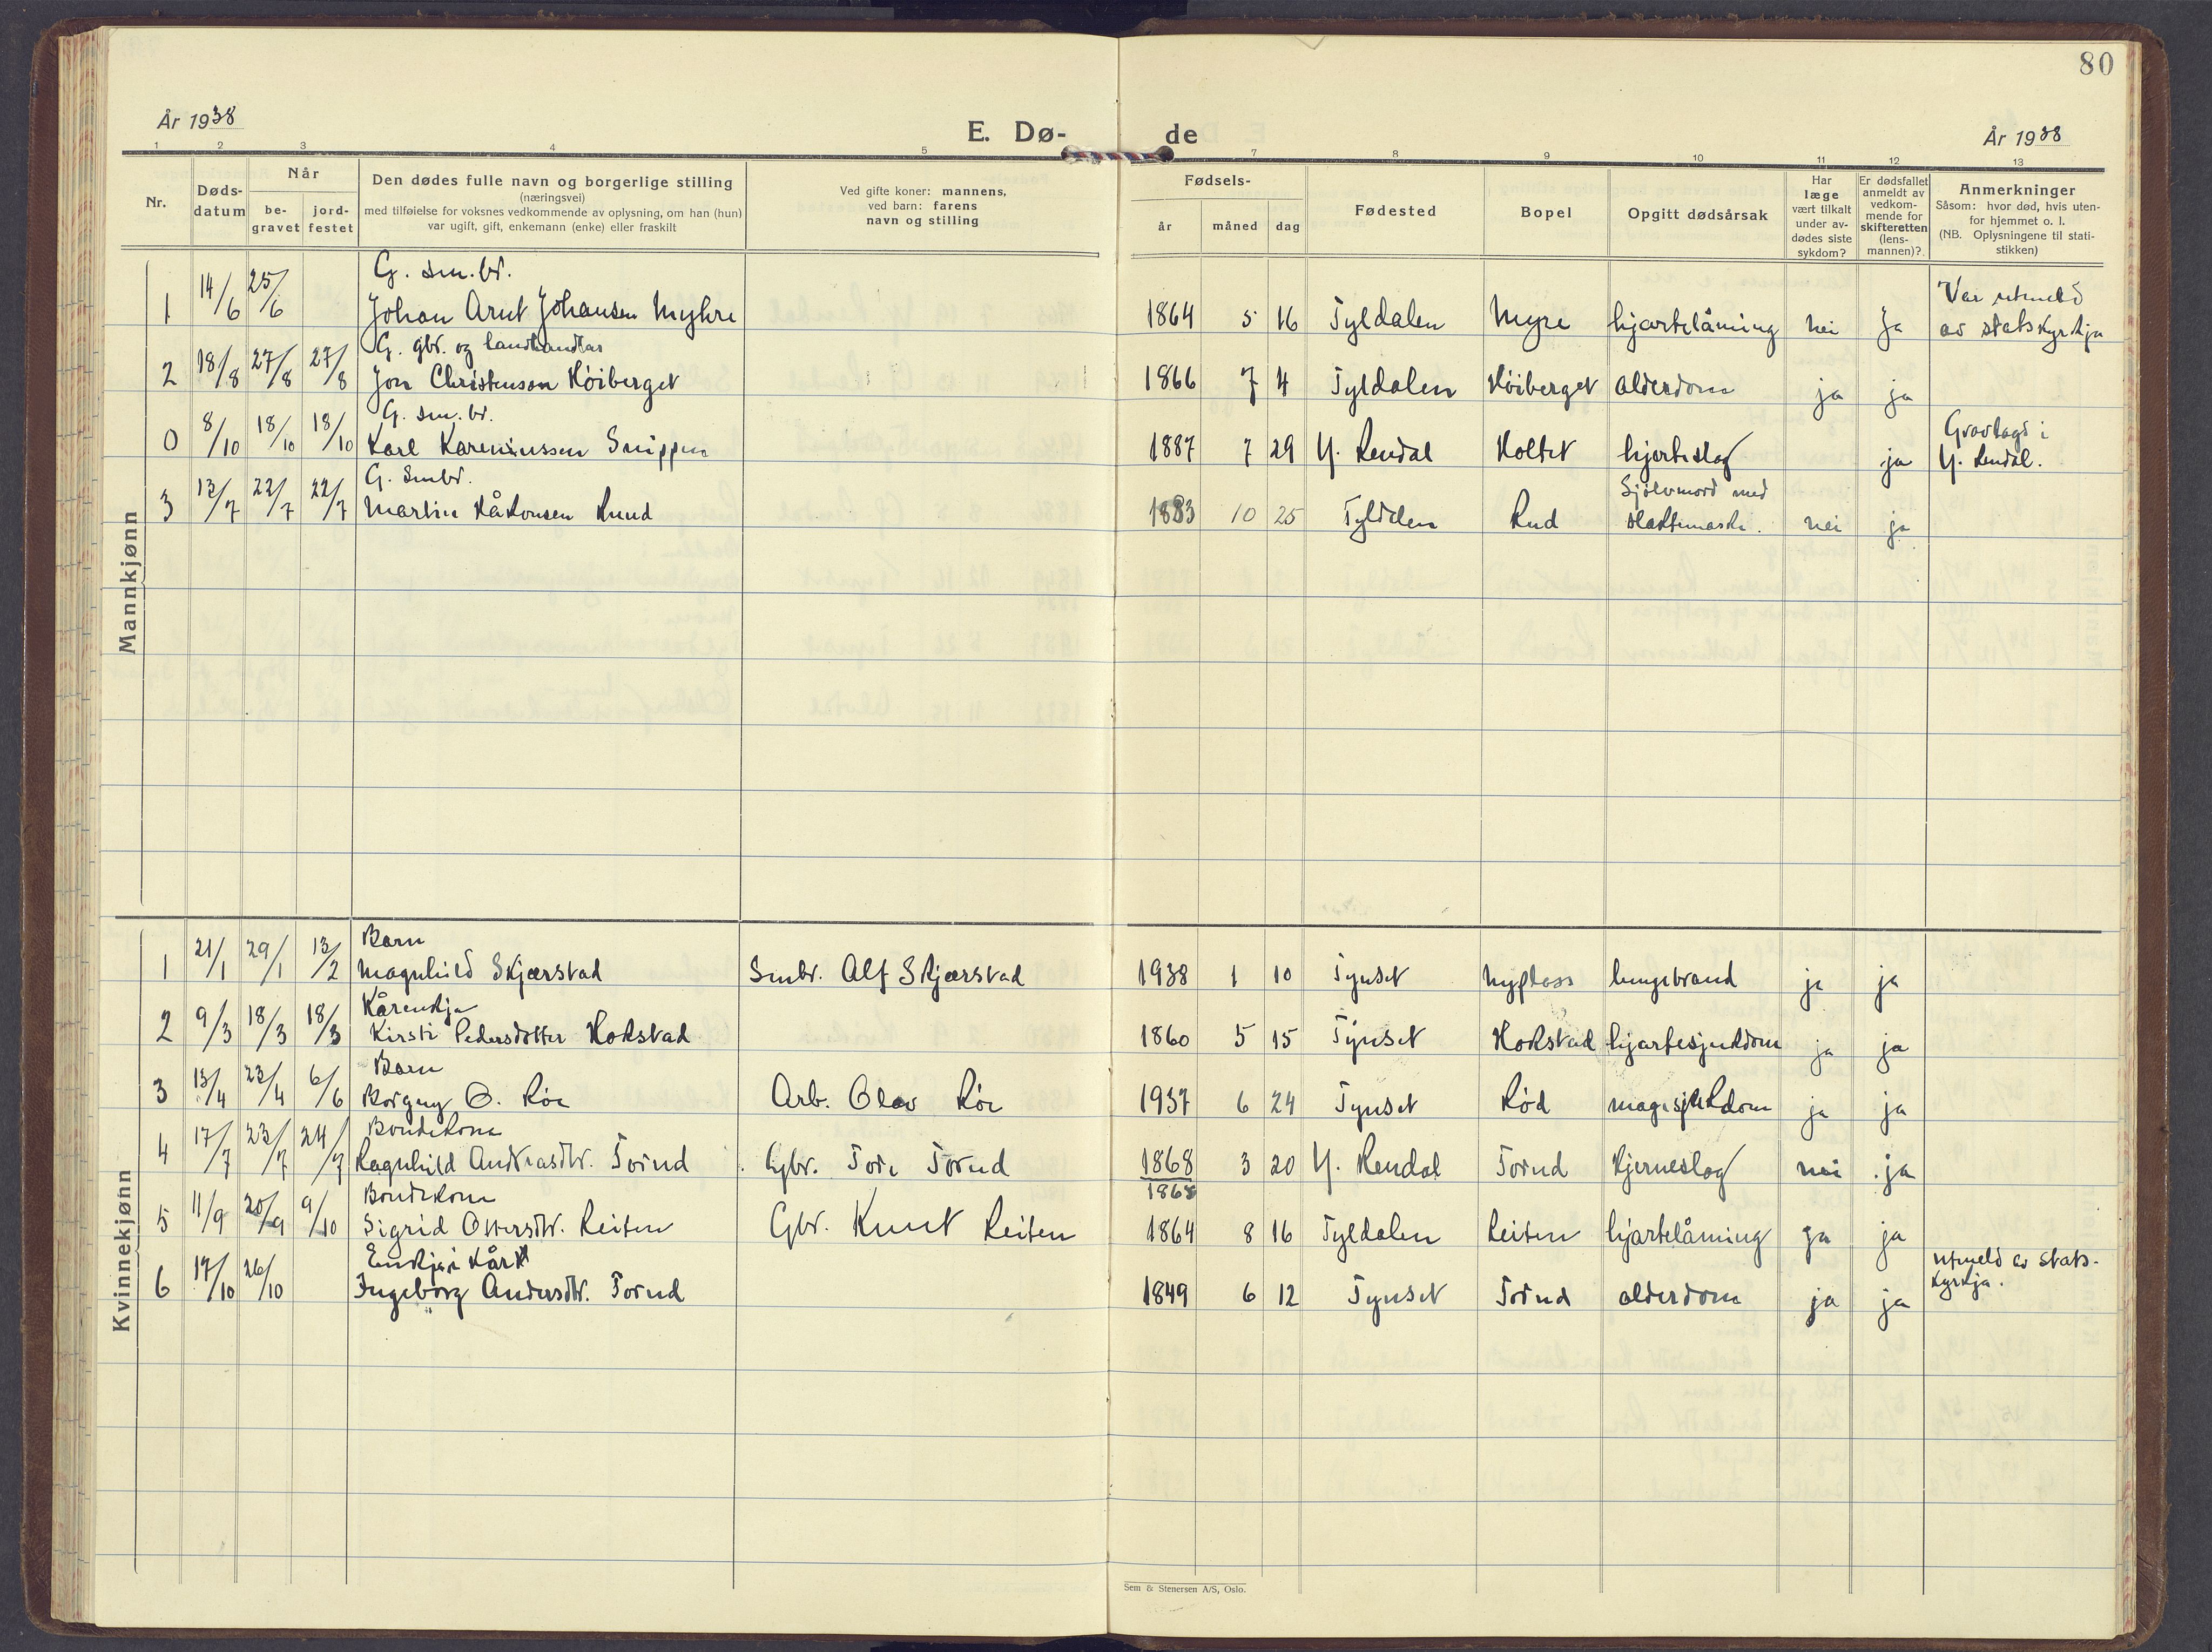 80
År 1938
E. Dø- de
År 1938
1 2 3 4 5 7 8 9 10 11 12 13
Nr.
Døds-
datum
Når
be-
gravet
jord-
festet
Den dødes fulle navn og borgerlige stilling
(næringsvei)
med tilføielse for voksnes vedkommende av oplysning, om han (hun)
var ugift, gift, enkemann (enke) eller fraskilt
Ved gifte koner: mannens,
ved barn: farens
navn og stilling
Fødsels-
år måned dag
Fødested
Bopel
Opgitt dødsårsak
Har
læge
vært tilkalt
under av-
dødes siste
sykdom?
Er dødsfallet
anmeldt av
vedkom-
mende for
skifteretten
(lens-
mannen)?
Anmerkninger
Såsom: hvor død, hvis uten-
for hjemmet o. l.
(NB. Oplysningene til stati-
stikken)
Mannkjønn
G. sm.br.
1 14/6 25/6 Johan Arnt Johansen Myhre 1864 5 16 Tyldalen Myre hjartelåming nei Ja
Var utmeld
av statskyrkja
G. gbr. og landhandlar
2 18/8 27/8 27/8 Jon Christenson Høiberget 1866 7 4 Tyldalen Høiberget alderdom ja ja
G. sm.br.
0 8/10 18/10 18/10 Karl Kareniussen Snippen 1887 7 29 Y. Rendal Holtet hjerteslag ja
Gravlagd i
Y. Rendal.
G. Smbr.
3 13/7 22/7 22/7 Martin Håkonsen Ruud 1883 10 25 Tyldalen Rud
Sjølvmord med
slaktemaske. nei ja
Kvinnekjønn
Barn
1 21/1 29/1 13/2 Magnhild Skjærstad Smbr. Alf Skjærstad 1938 1 10 Tynset Nyplass lungebrand ja ja
Kårenkja
2 9/3 18/3 18/3 Kirsti Pedersdotter Hokstad 1860 5 15 Tynset Hokstad hjartesjukdom ja ja
Barn
3 13/4 23/4 6/6 Borgny O. Røe Arb. Olav Røe 1937 6 24 Tynset Rød magesjukdom ja ja
Bondekona
4 17/7 23/7 24/7 Ragnhild Andreasdtr. Torud Gbr. Tore Torud 1868 3 20 Y. Rendal Torud hjerneslag nei ja
1868
Bondekona
5 11/9 20/9 9/10 Sigrid Ottersdtr. Reiten Gbr. Knut Reiten 1864 8 16 Tyldalen Reiten hjartelåming ja ja
Enkja i kår
6 17/10 26/10 Ingeborg Andersdtr. Torud 1849 6 12 Tynset Torud alderdom ja ja
utmeld av stats-
kyrkja.
Sem & Stenersen A/S, Oslo.